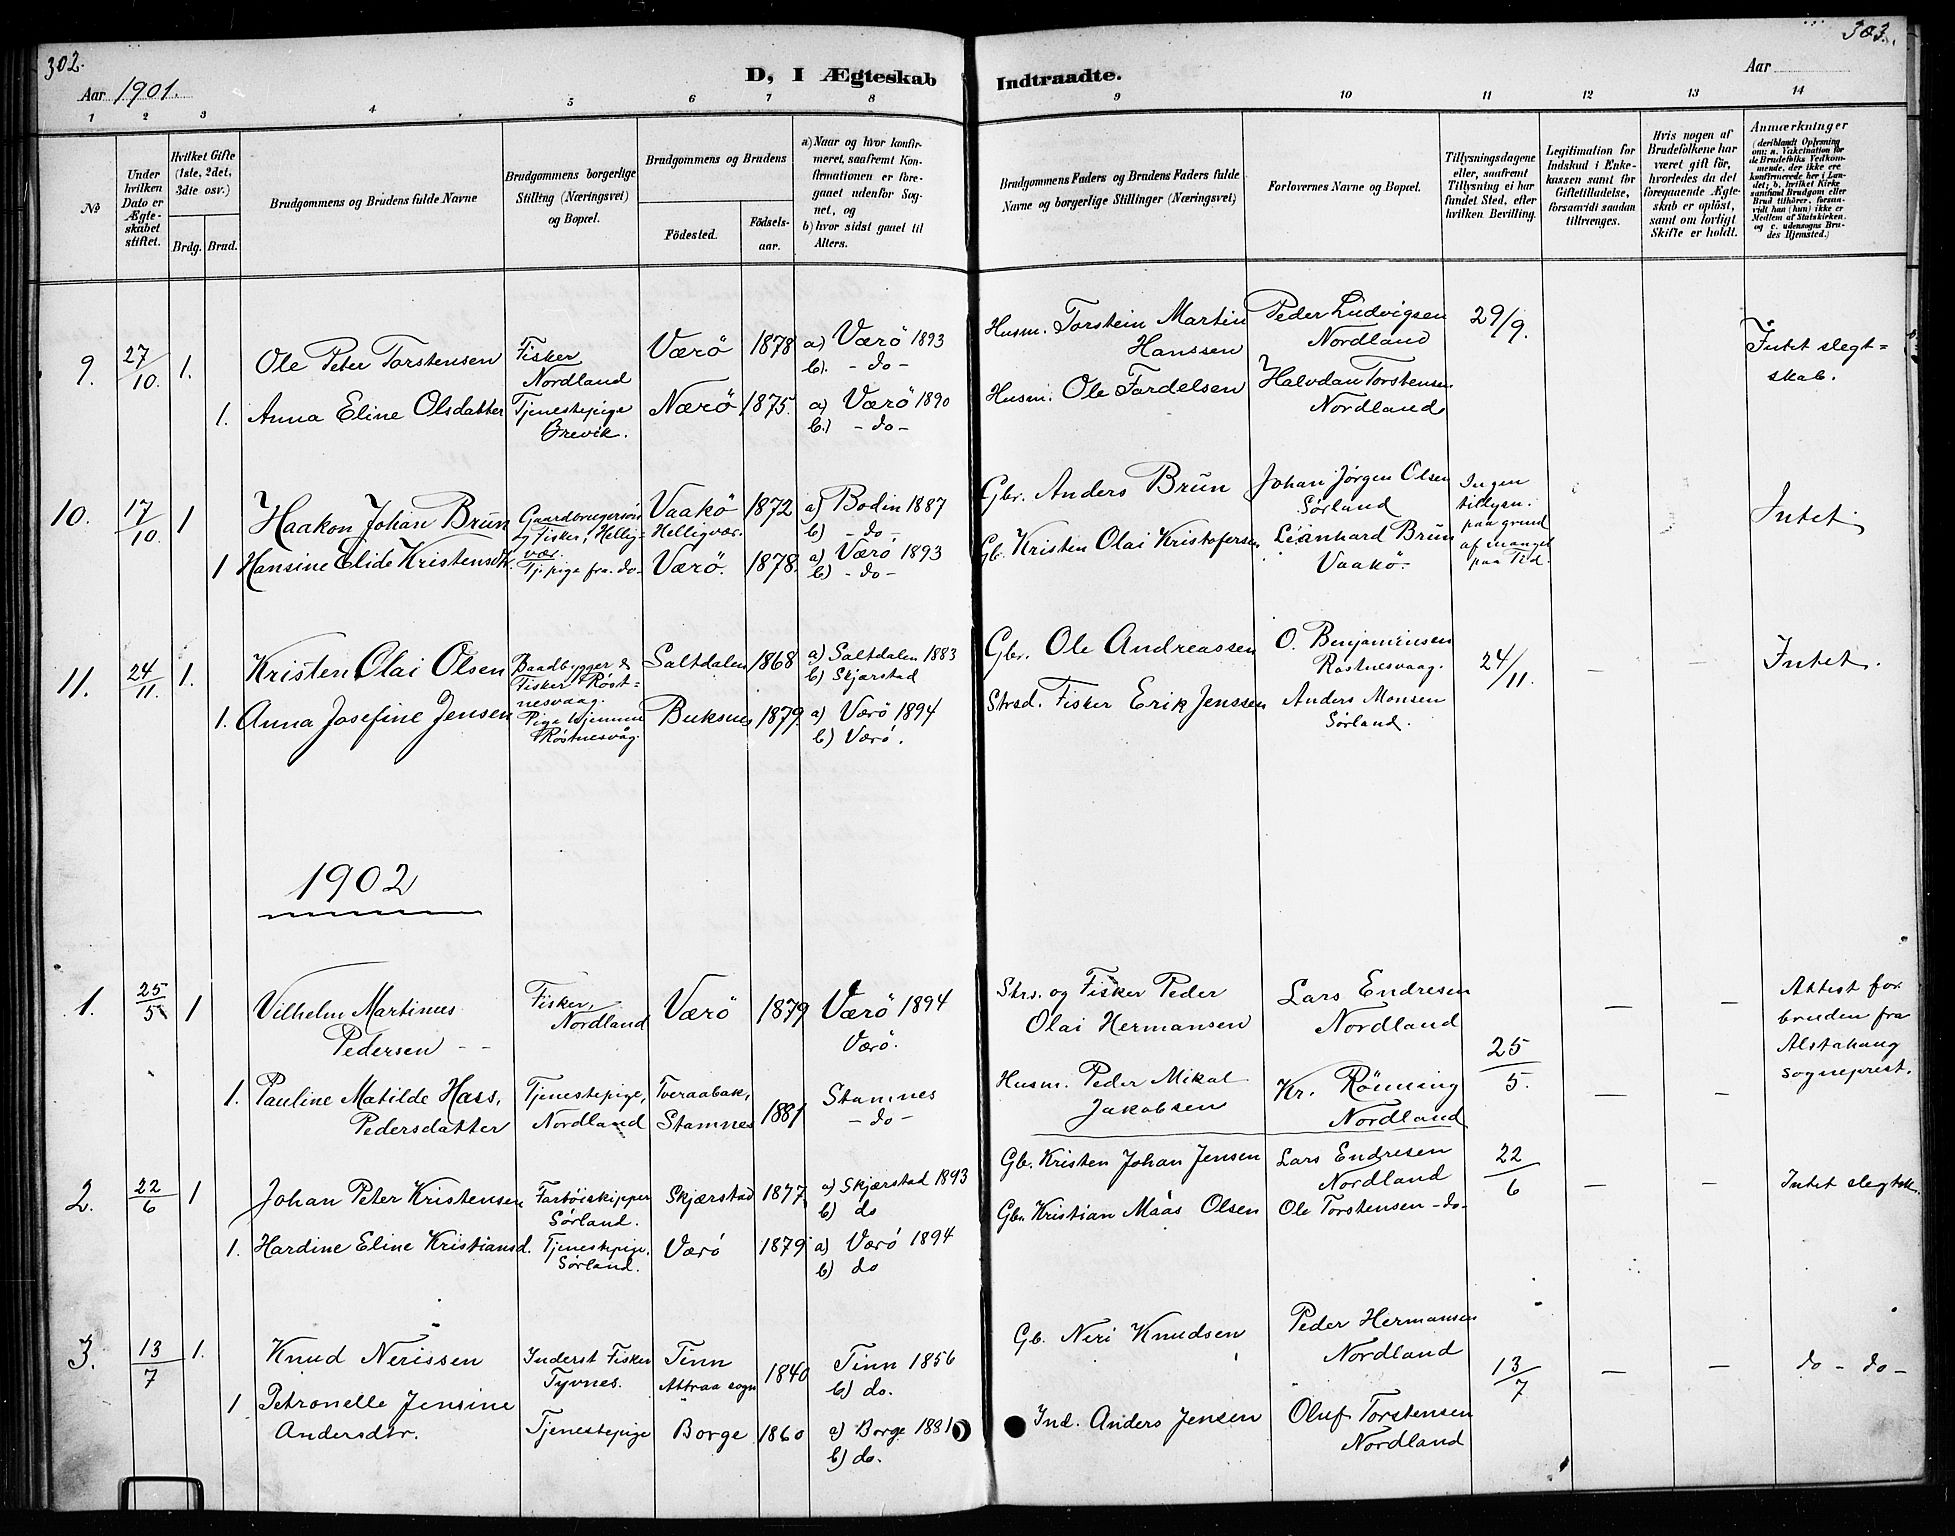 302.
303.
D, I Ægteskab Indtraadte.
Aar 1901.
Aar
1 2 3 4 5 6 7 8 9 10 11 12 13 14
№
Under hvilken Dato er Ægteskabet stiftet.
Hvilket Gifte (1ste, 2det, 3dte osv.)
Brdg. Brud.
Brudgommens og Brudens fulde Navne
Brudgommens borgerlige Stilling (Næringsvei) og Bopæl.
Brudgommens og Brudens
Fødested.
Fødselsaar.
a) Naar og hvor konfirmeret, saafremt Konfirmationen er foregaaet udenfor Sognet, og
b) hvor sidst gaaet til Alters.
Brudgommens Faders og Brudens Faders fulde Navne og borgerlige Stillinger (Næringsvei)
Forlovernes Navne og Bopæl.
Tillysningsdagene eller, saafremt Tillysning ei har fundet Sted, efter hvilken Bevilling.
Legitimation for Indskud i Enkekassen samt for Giftetilladelse, forsaavidt saadan tiltrænges.
Hvis nogen af Brudefolkene har været gift før, hvorledes da det foregaaende Ægteskab er opløst, samt om lovligt Skifte er holdt.
Anmærkninger (deriblandt Oplysning om: a. Vakcination for de Brudefolks Vedkommende, der ikke ere konfirmerede her i Landet; b. hvilket Kirkesamfund Brudgom eller Brud tilhører, forsaavidt han (hun) ikke er Medlem af Statskirken, og c. udensogns Brudes Hjemsted.)
9. 27/10. 1. Ole Peter Torstensen Fisker Nordland Værö 1878 a) Værö 1893 b). - do - Husm. Torstein Martin Hanssen Peder Ludvigsen Nordland 29/9. Intet slegtskab.
1. Anna Eline Olsdatter Tjenestepige Brevik. Nærö 1875. a) Værö 1890 b.) - do - Husm. Ole Fardelsen Halvdan Torstensen Nordland
10. 17/10. 1 Haakon Johan Brun Gaardbrugersön Fisker, Helligvær. Vaakö Helligvær. 1872 a) Bodin 1887 b) - do - Gbr. Anders Brun Johan Jørgen Olsen Sørland Ingen tillysn. paa grund af mangel paa Tid. Intet.
1 Hansine Elide Kristensdtr. Tj. pige fra do - Værö. 1878. a) Værö 1893 b) - do - Gb. Kristen Olai Kristofersen Leanhard Brun Vaakö.
11. 24/11. 1. Kristen Olai Olsen Baadbygger & Fisker Røstnesvaag. Saltdalen 1868 a) Saltdalen 1883 b) Skjærstad Gbr. Ole Andreassen O. Benjaminsen Røstnesvaag. 24/11. - - Intet.
1. Anna Josefine Jensen Pige hjemme Røstnesvåg. Buksnes 1879 a) Værö 1894 b) Værö. Strsd. Fisker Erik Jenssen Anders Monsen Sørland.
1902
1. 25/5 1 Vilhelm Martinus Pedersen - - Fisker, Nordland Værö 1879 Værö 1894 Værö. Strs. og Fisker Peder Olai Hermansen Lars Endresen Nordland 25/5. - - Attest for bruden fra Alstahaug sogneprest.
1. Pauline Matilde Hass, Pedersdatter Tjenestepige, Nordland Tveraabak, Stamnes 1881 Stamnes - do - Husm. Peder Mikal Jakobsen Kr. Rönning Nordland - -
2. 22/6 1 Johan Peter Kristensen Fartøiskipper Sørland. Skjærstad 1877 a) Skjærstad 1893 b) do Gb. Kristen Johan Jensen Lars Endresen Nordland 22/6 - - Intet slegtsk.
1. Hardine Eline Kristiansd. Tjenestepige. Sørland. Værö 1879 a) Værö 1894 b) do Gbr. Kristian Måås Olsen Ole Torstensen - do -
3. 13/7 1. Knud Nerissen Inderst Fisker Tyvnes. Tinn Attraa sogn 1840 Tinn 1856 b) do. Gb. Neri Knudsen Peder Hermansen Nordland 13/7 - - do - do -
1 Petronelle Jensine Andersdtr. Tjenestepige Borge 1860 a) Borge 1881 b) do. Ind. Anders Jensen Oluf Torstensen Nordland